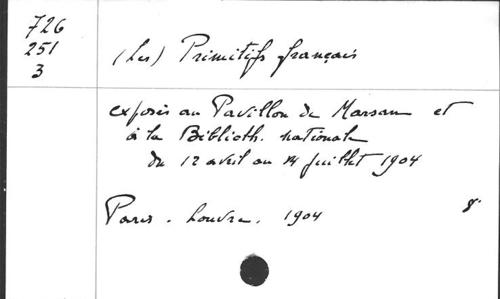 726
251
3
(Les) Primitifs français
exposés au Pavillon de Marsan et
à la Biblioth. nationale
du 12 avril au 14 juillet 1904
Paris. Louvre. 1904 8°